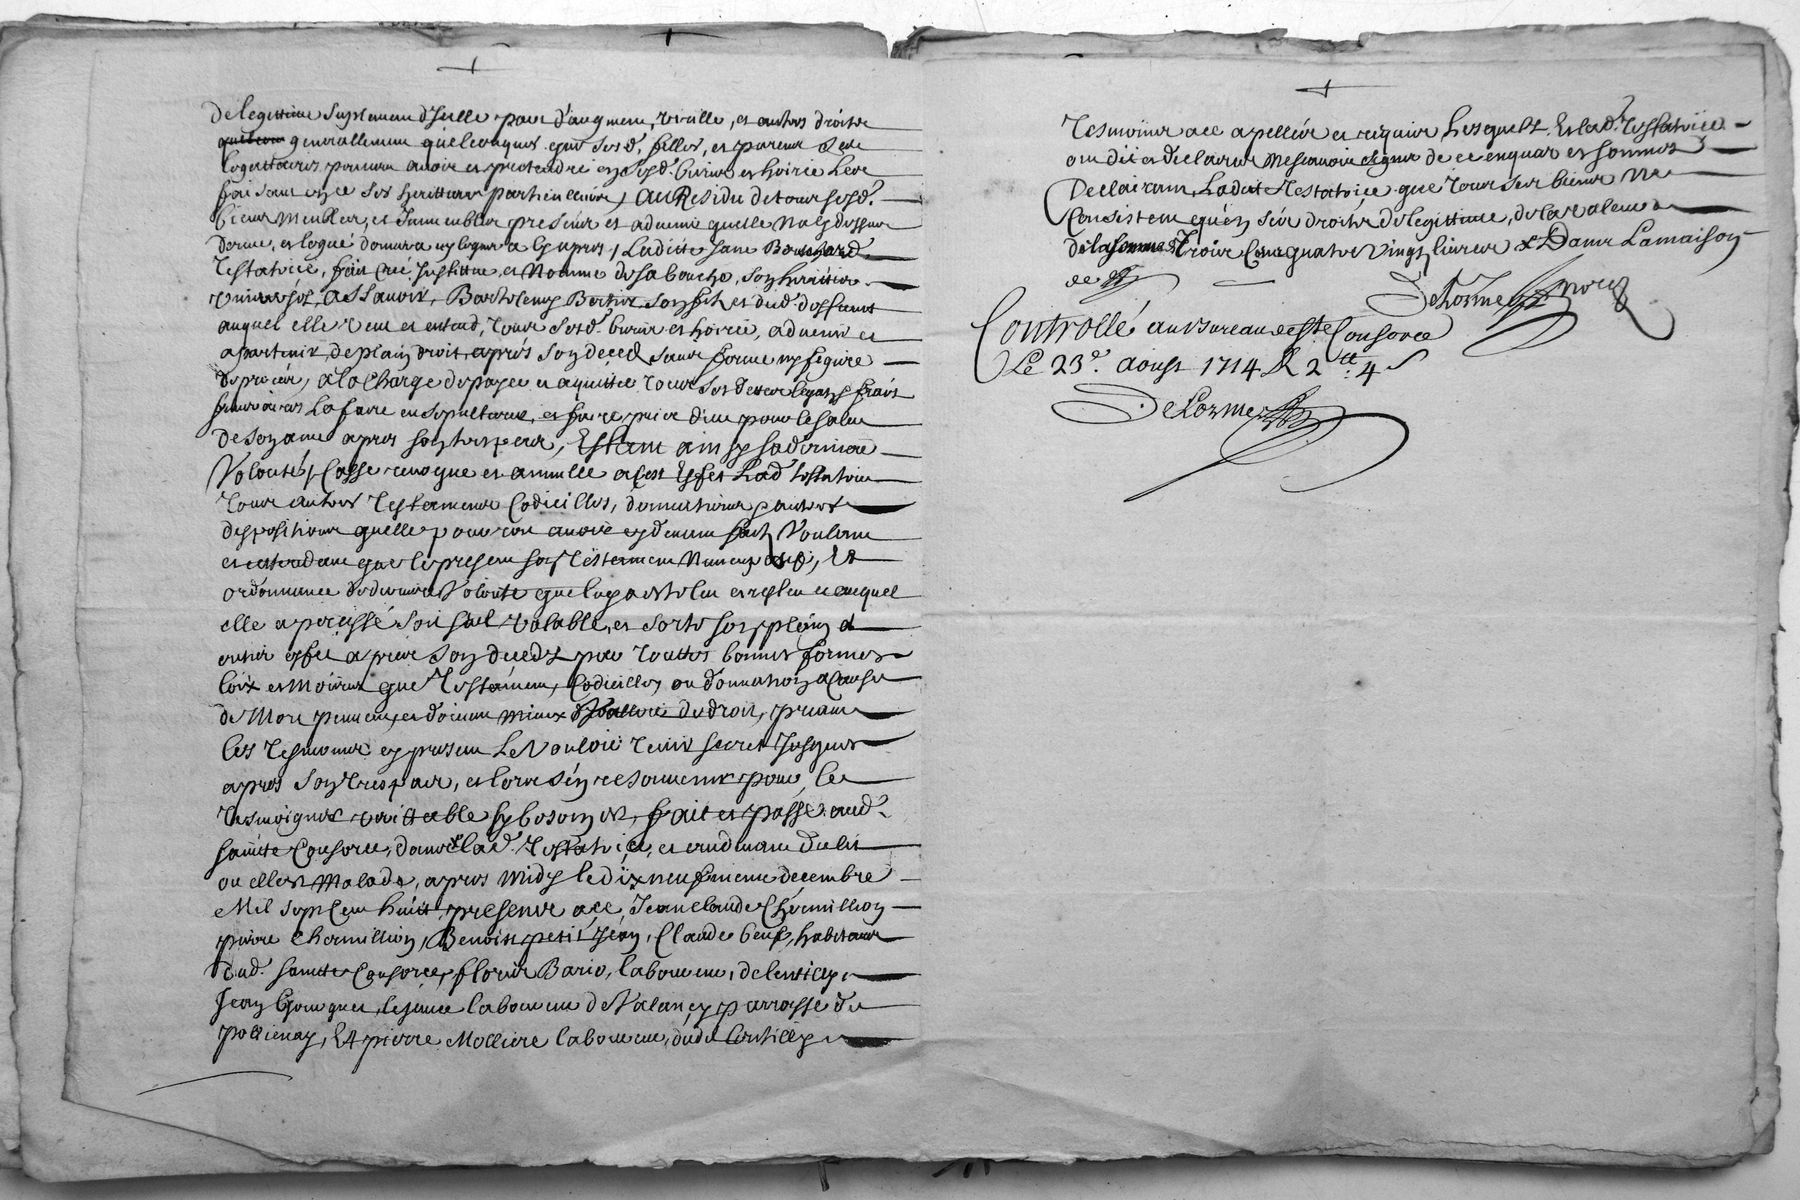 de legittime suplement d'Icelle part d'augment, et autres droits
generallement quelconques que sesd. filles, et parent
legattaires pourroient avoir et pretendre en sesd. biens et hoirie Les
faisant en ce ses herittiers particuliers, Au Residu de tous sesd.
biens Meubles, et Immeubles presents et advenir quelle Na cy dessus
donné, et legué donnera ny leguera cy apres, Ladicte Jane Bouchard
Testatrice, fait Crée Institue, et Nomme de sa bouche, son heritier
universel, Assavoir, Barthelemy Berthet son fils et dud. deffunct
auquel elle veut et entend, tous sesd. biens et hoirie, advenir et
apartenir, de plain droit, aprés son deced sans forme ny figure
de procès, a la Charge de payer et aquitter tous ses dettes legats frais
funeraires La faire ensepulturer, et faire prier dieu pour le salut
de son ame apres son trespas, Estant ainsy sa derniere
Volonté, Casse revoque et annulle a Cest Effet Lad. testatrice
tous autres Testaments Codicilles, donnations et autres
dispositions quelle pourroit avoir cy devant fait, Voulant
et entendant que le present son Testament Nuncupatif, Et
ordonnance de derniere Volonté que luy a esté leu et releu et auquel
elle a percisté Soit seul valable, et sorte son plein et
entier effet apres son deceds par touttes bonnes formes
loix et Moiens que Testament, Codicilles ou donnation a Cause
de Mort peuvent, et doivent mieux Valloir de droit, priant
les tesmoins cy present Le Vouloir tenir secret Jusques
apres son trespas, et lors s'en resouvenir pour le
tesmoigner veritable sy besoin est, fait et passé aud.
saincte Consorce, domicille lad. Testatrice, et au devant du lit
ou elle est Malade, apres midy le dix neufvieme decembre
Mil sept Cent huict, presents ace, Jean Claude Chermillion
pierre Chermillion, Benoist petit Jean, Claude beuf, habitants
dud. saincte Consorce, fleurie Bario, laboureur, de lentilly,
Jean le jeune laboureur de Valancy parroisse de
pollienay, Et pierre Molliere laboureur, dud. lentilly
Tesmoins ace apellés et requis Lesquels Et lad. Testatrice
ont dit et declaré Ne scavoir signer de ce enquis et sommés
Declairant Ladicte Testatrice que tous ses biens Ne
Consistent qu'en ses droits de legittime, de la valeur
de la somme Trois Cent quatre Vingt livres Dans La maison
Delorme
Controllé au Bureau de Ste Consorce
Le 23e. Aoust 1714 R 2tt: 4s
Delorme